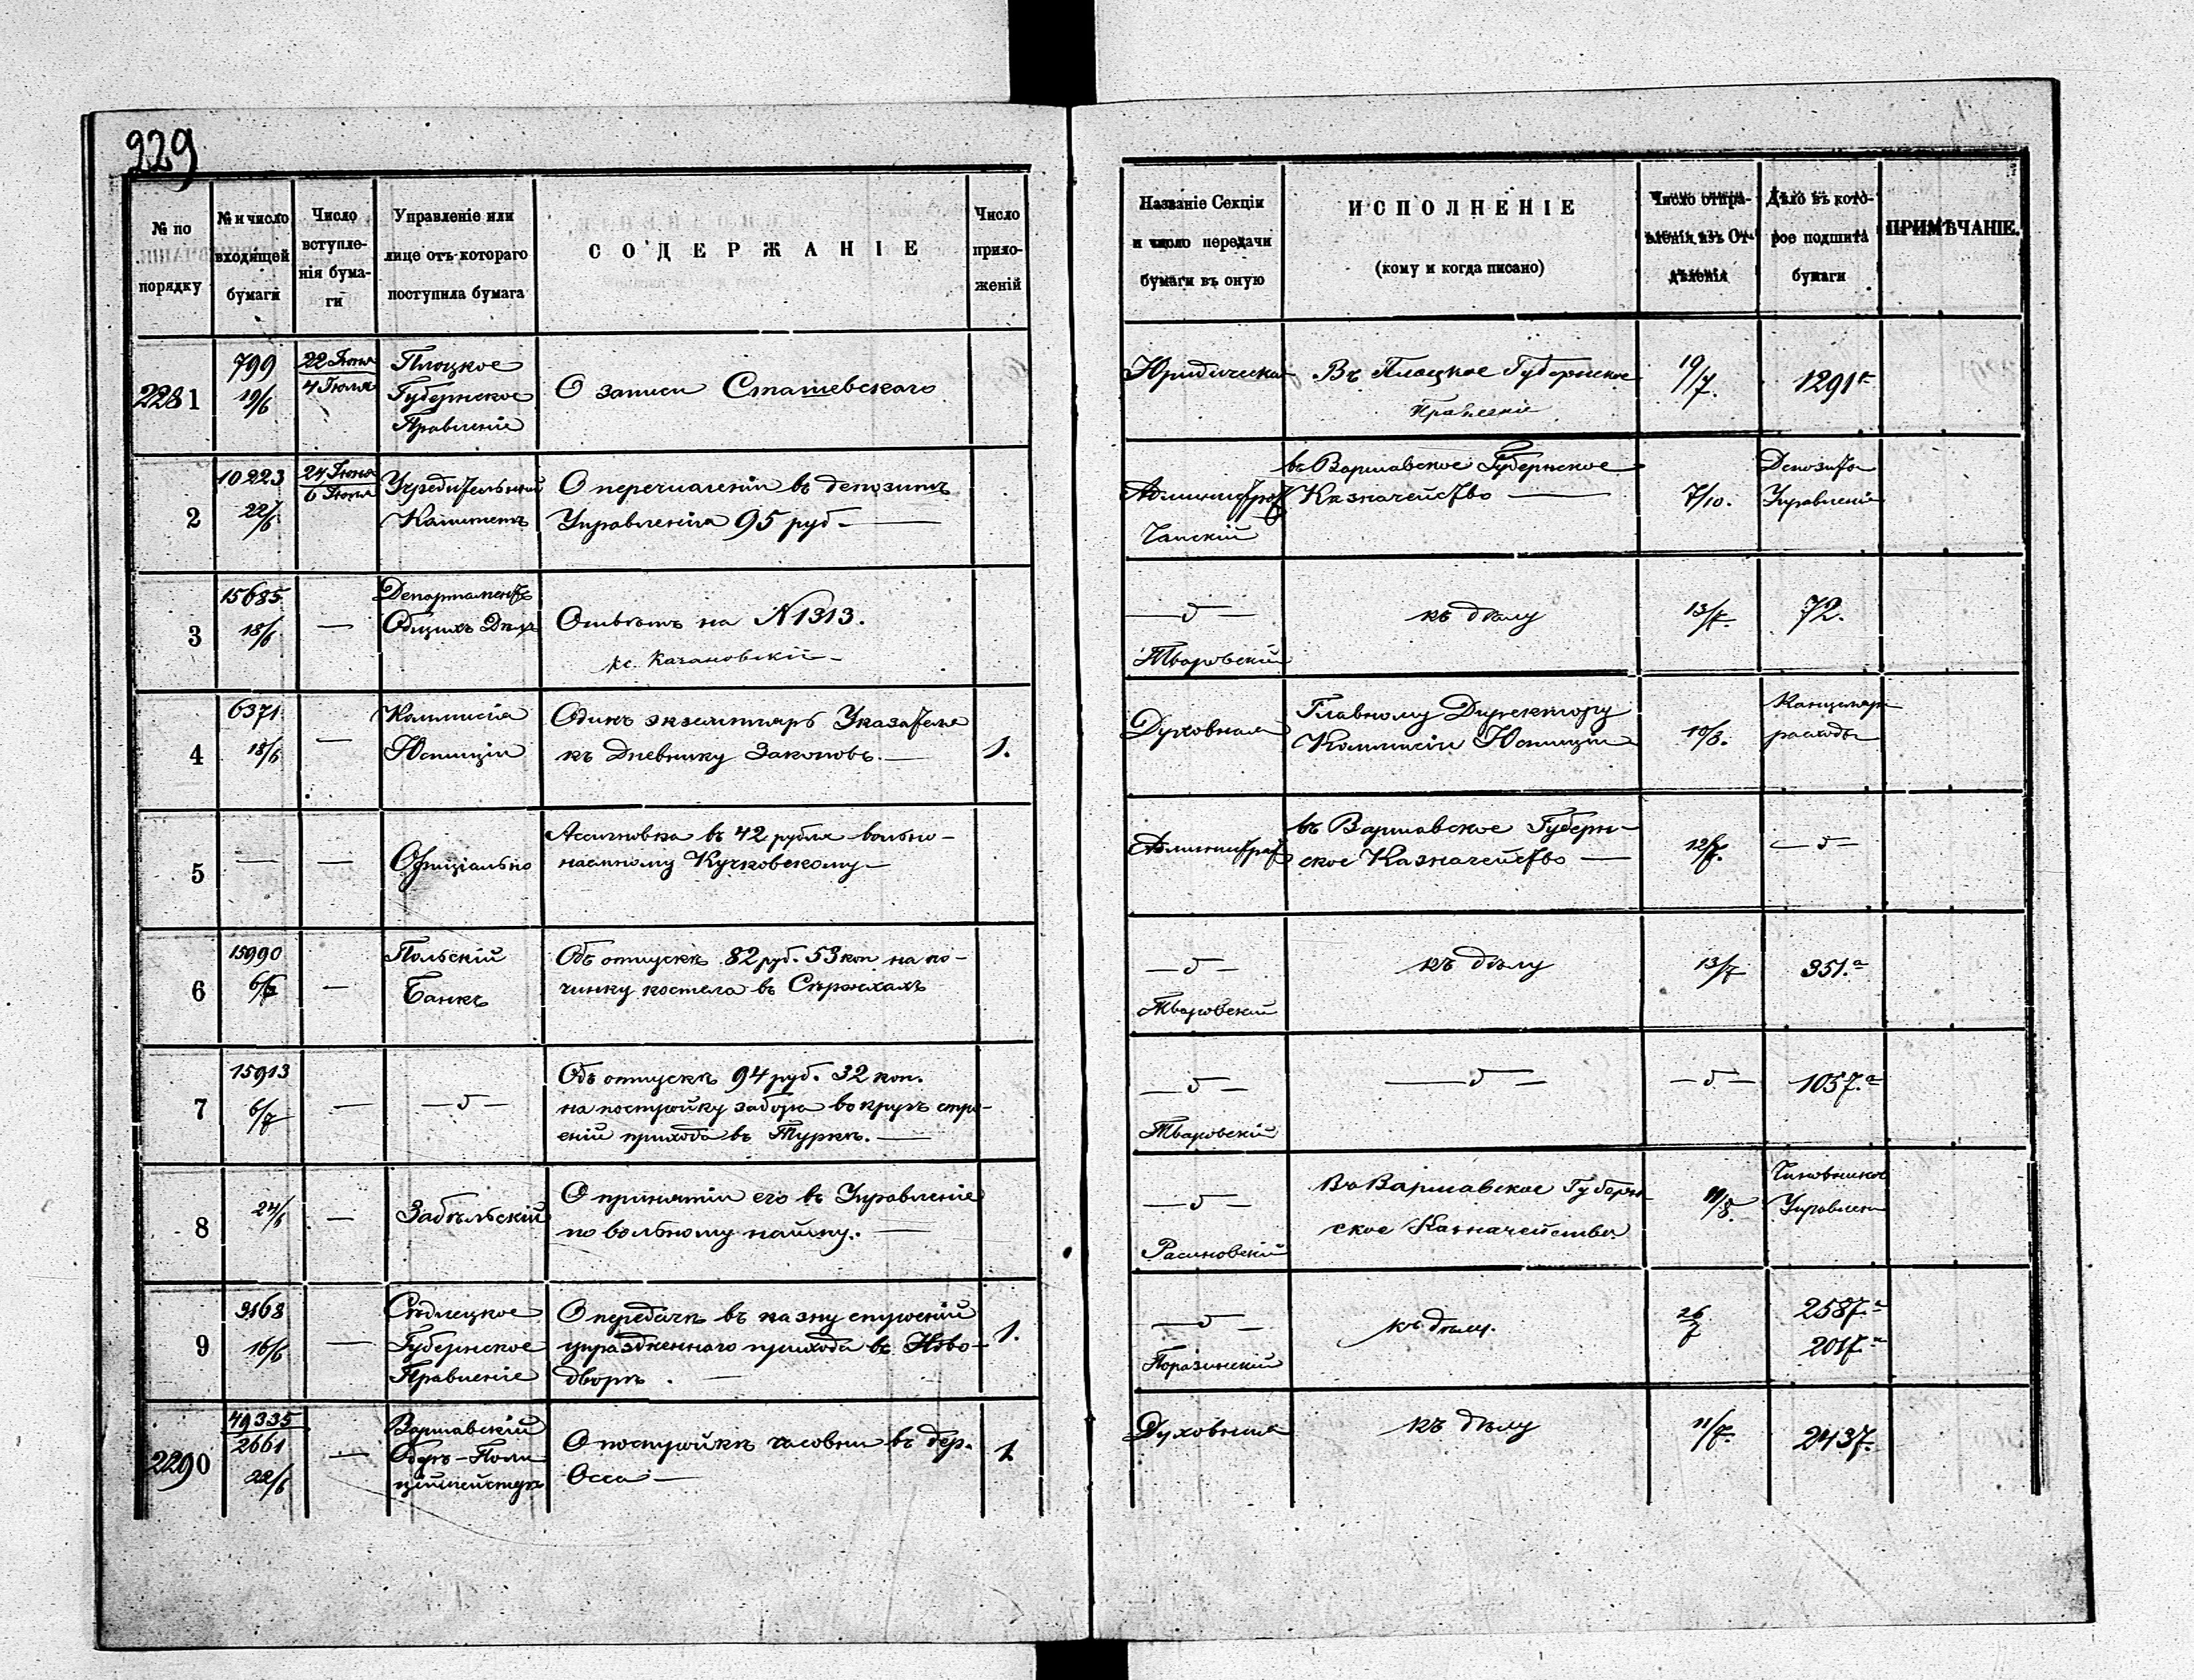 229
№ по порядку
№ и число входящей бумаги
Число вступле-нія бума-ги
Управленіе или лице отъ котораго поступила бумага
СОДЕРЖАНІЕ
Число прило-женій
Названіе Секціи и число передачи бумаги въ оную
ИСПОЛНЕНІЕ
(кому и когда писано)
Число отпра-вленія изъ От-дѣленія
Дѣло въ кото-рое подшита бумаги
ПРИМѢЧАНІЕ.
2281
799
19/6
22 Іюня
4 Іюля
Плоцкое
Губернское
Правленіе
О записи Сташевскаго
Юридическая
Въ Плоцкое Губернское
Правленіе
19/7.
1291а
2
10223
22/6
24 Іюня
6 Іюля
Учредительный
Комитетъ
О перечисленіи въ депозитъ
Управленія 95 руб. —
Администрат
Чапскій
въ Варшавское Губернское
Казначейство —
7/10.
Депозита
Управленія
3
15685
18/6
—
Департаментъ
Общихъ Дѣлъ
Отвѣтъ на N 1313.
кс. Качановскій —
— " —
Тваровскій
къ дѣлу
13/7.
72.
4
6371
18/6
—
Коммисія
Юстиціи
Одинъ экземпляръ Указателя
къ Дневнику Законовъ. —
1.
Духовная
Главному Директору
Коммисіи Юстиціи
10/8.
Канцеляр
расходы
5
—
—
Офиціально
Ассигновка въ 42 рубля вольно-
наемному Кучковскому —
Администрат
въ Варшавское Губерн-
ское Казначейство —
12/7.
— " —
6
15990
6/7
—
Польскій
Банкъ
Объ отпускѣ 82 руб. 53 коп на по-
чинку костела въ
— " —
Тваровскій
къ дѣлу
13/7
351.а
7
15913
6/7
—
— " —
Объ отпускѣ 94 руб. 32 коп.
на постройку забора вокругъ стро-
еній прихода въ Туркѣ. —
— " —
Тваровскій
— " —
— " —
1057.а
8
24/6
—
Забѣльскій
О принятіи его въ Управленіе
по вольному найму. —
— " —
Расиновскій
Въ Варшавское Губерн-
ское Казначейство.
11/8.
Чиновников
Управлен
9
3168
16/6
—
Сѣдлецкое
Губернское
Правленіе
О передачѣ въ казну строеній
упраздненнаго прихода въ Ново-
дворѣ. —
1.
— " —
Поразинскій
къ дѣлу.
26/7
2587.а
2017.а
2290
49335
2661
22/6
—
Варшавскій
Оберъ-Поли
ціймейстеръ
О постройкѣ часовни въ дер.
Осса —
1
Духовная
къ дѣлу
11/7.
2437.